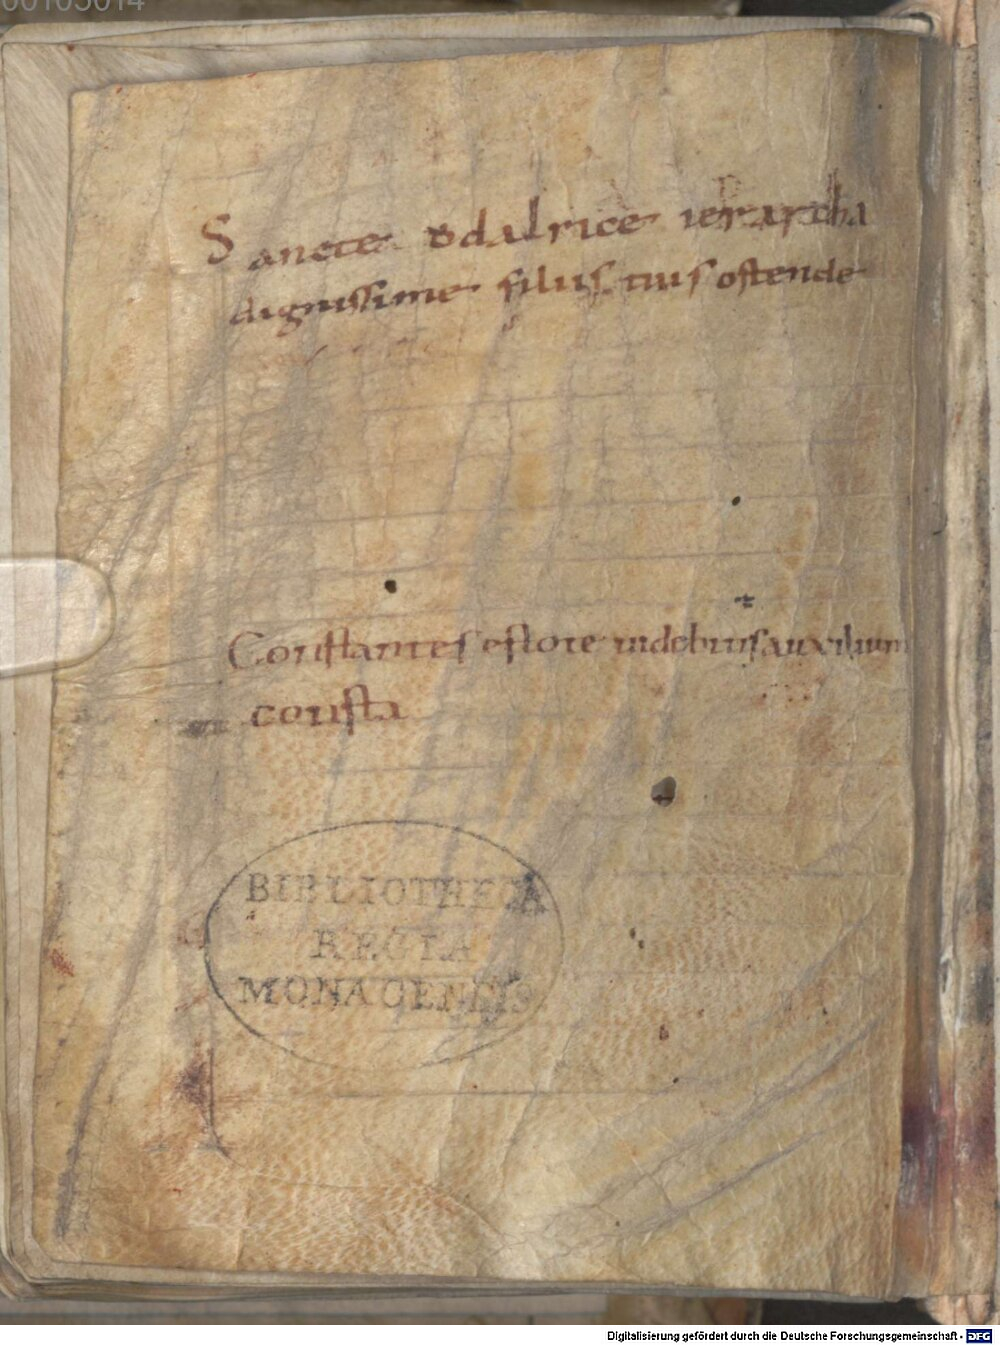 00105014
Sancte ődalrice ierarcha
dignissime filiis tuis ostende
Constantes estote uidebitis auxilium
consta
BIBLIOTHECA
REGIA
MONACENSIS
Digitalisierung gefördert durch die Deutsche Forschungsgemeinschaft - DFG